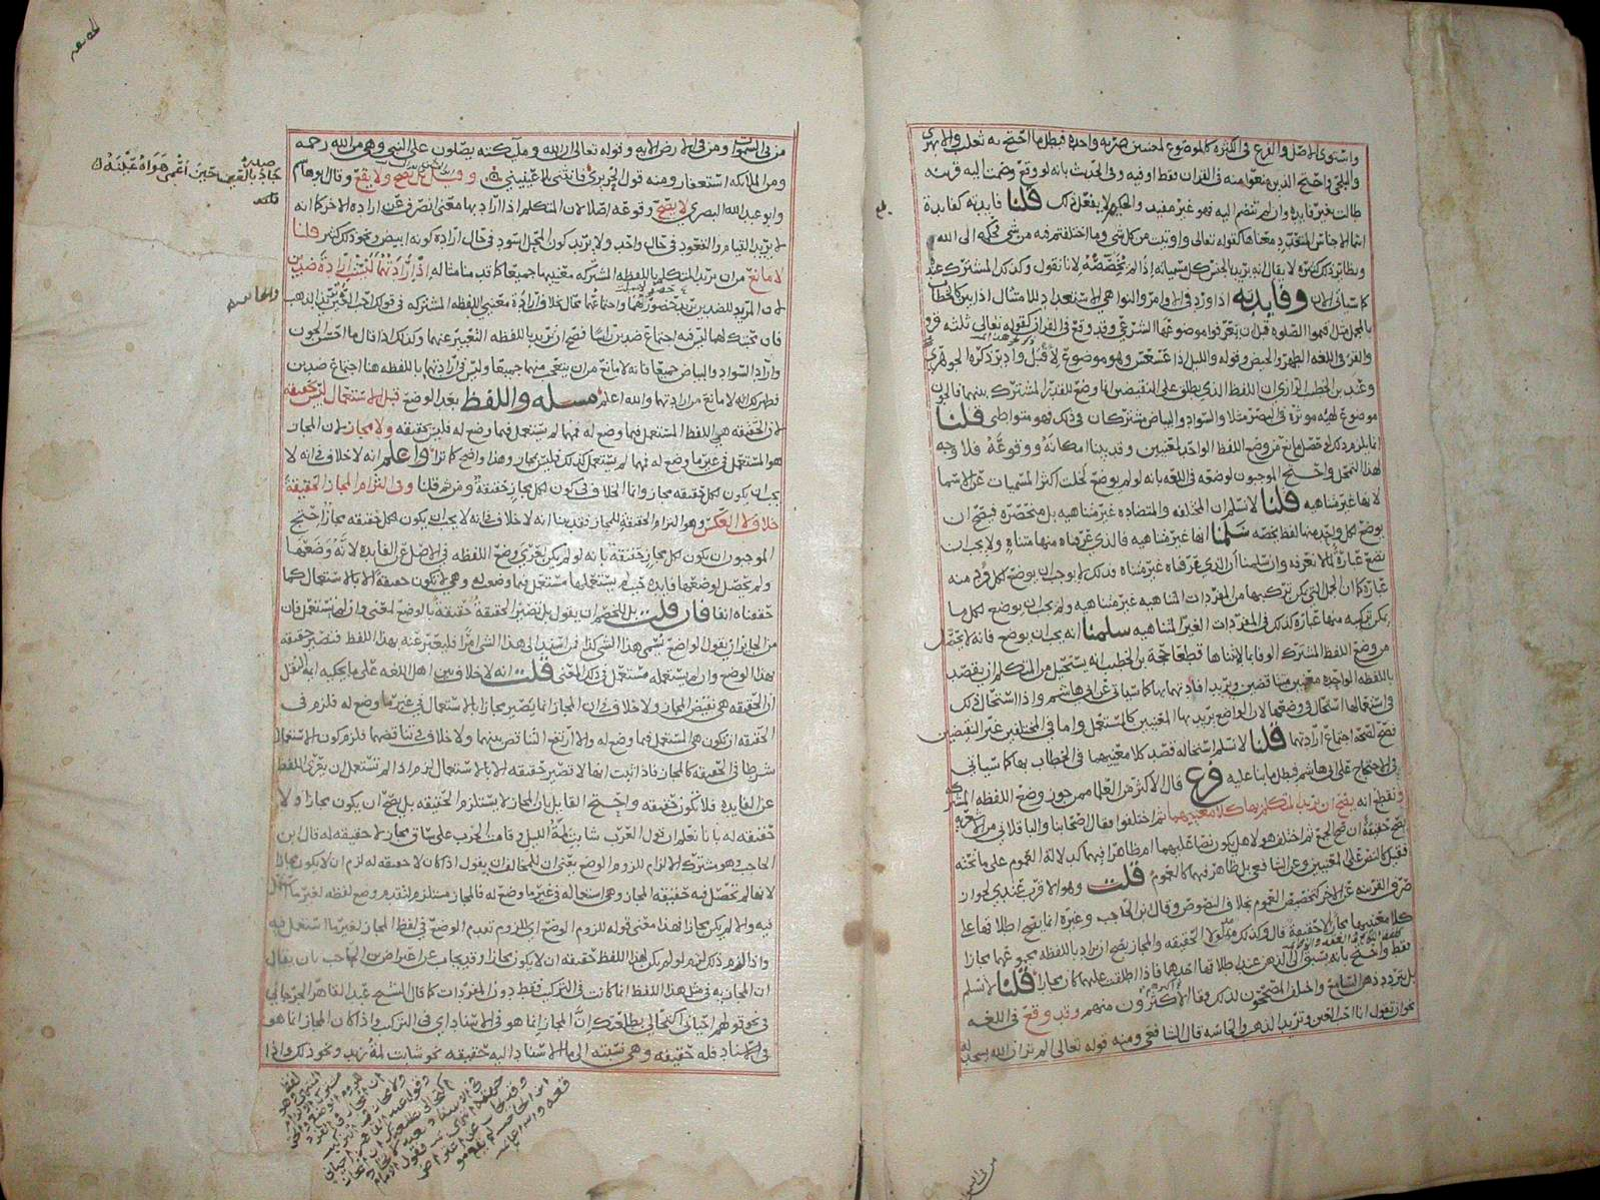 واستوى الاصل والفرع في الكثرة كالموضوع لمعنيين
والبلخي واحتج الذين منعوا منه في القران فقط او فيه وفي الحديث بانه لو وقع وضمت اليه قرينة
طالت بغير فايدة وان لم تنضم اليه فهو غير مفيد والحكيم لا يفعل ذلك قلنا فايدته كفايدة
اسما الاجناس معناها كقوله تعالى واوتيت من كل شي وما اختلفتم فيه من شي فحكمه الى الله
ونظاير ذلك كثيرة لا يقال انه يريد الجنس كل مسمياته اذا لم يخصصه لانا نقول وكذلك المشترك عند
كما سياتي الان وفايدته اذا ورد في الاوامر والنواهي الاستعداد للامتثال اذا بين كالخطاب
بالمجمل مثل اقيموا الصلوه قبل ان يعرفوا موضوعها الشرعي وقد وقع في القران كقوله تعالى ثلثه قرو
والقرء في اللغه الطهر والحيض وقوله والليل اذا عسعس وهو موضوع لاقبل وادبر ذكره الجوهري
وعند بن الخطيب الرازي ان اللفظ الذي يطلق على النقيضين انما وضع للقدر المشترك بينهما فالجون
موضوع لهيئه موثرة في البصر مثلا والسواد والبياض مشتركان في ذلك فهو متواطي قلنا
انما يلزم ذلك لو حصل مانع من وضع اللفظ الواحد لمعنيين وقد بينا امكانه ووقوعه فلا وجه
لهذا التمحل واحتج الموجبون لوضعه في اللغه بانه لو لم يوضع لخلت اكثر المسميات عن الاسما
لانها غير متناهيه قلنا لا نسلم ان المختلفه والمتضاده غير متناهيه بل منحصره فيصح ان
يوضع لكل واحد منها لفظ يخصه سلمنا انها غير متناهيه فالذي عرفناه منها متناه ولا يجب ان
نضع عبارة لما لا نعرفه وان سلمنا ان الذي عرفناه غير متناه فذلك لا يوجب ان يوضع لكل فرد منه
عبارة كما ان الجمل التي يمكن تركيبها من المفردات المتناهيه غير متناهيه ولم يجب ان يوضع لكل ما
يمكن تركيبه منها عبارة كذلك في المفردات الغير المتناهيه سلمنا انه يجب ان يوضع فانه لا يحصل
من وضع اللفظ المشترك الوفا بما لا يتناها قطعا حجة بن الخطيب انه يستحيل من المتكلم ان يقصد
باللفظه الواحده معنيين متناقضين ويريد افادتهما بها كما سياتي عن ابي هاشم واذا استحال ذلك
في استعمالها استحال في وضعها لان الواضع يريد بها المعنيين كالمستعمل واما في المختلفين غير النقيضين
فصح لصحة اجتماع ارادتهما قلنا لا نسلم استحاله قصد كلا معنييهما في الخطاب بها كما سياتي
في الاحتجاج على ابي هاشم فبطل ما بنا عليه فرع قال الاكثر من العلما ممن جوز وضع اللفظه المشتركه
ونقطع انه يصح ان يريد المتكلم بها كلا معنييها ثم اختلفوا فقال اصحابنا والباقلاني من الاشعريه
يصح حقيقة ان صح الجمع ثم اختلف هولا هل يكون نصا عليهما ام ظاهرا فيهما كدلالة العموم على ما تحته
فقيل كالنص على المعنيين وعن الشافعي بل ظاهر فيهما كالعموم قلت وهو الاقرب عندي لجواز
صرف القرينه عن الاخر كتخصيص العموم بخلاف النصوص وقال ابن الحاجب وغيره انما يصح اطلاقها على
كلا معنييها مجازا لا حقيقة قال وكذلك مدلولا الحقيقه والمجاز يصح ان يراد باللفظه مجموعهما مجازا
فقط واحتج بانه سبق الى الذهن عند اطلاقها احدهما فاذا اطلقت عليهما كان مجازا قلنا لا نسلم
بل يتردد ذهن السامع واختلف المصححون لذلك وقال الاكثرون منهم وقد وقع في اللغه
نحو ان تقول انا احب العين وتريد الذهب والحاسه قال الشافعي ومنه قوله تعالى الم تر ان الله يسجد له
من في السموات ومن في الارض الايه وقوله تعالى ان الله وملئكته يصلون على النبي وهي من الله رحمه
ومن الملائكه استغفار ومنه قول الحريري فانثنى بلا عينين وقيل لم يصح ولا يقع وقال ابو هاشم
وابو عبد الله البصري لا يصح وقوعه اصلا لان المتكلم اذا اراد بها معنى انصرف عن ارادة الاخر كما انه
لا يريد القيام والقعود في حال واحد ولا يريد كون المحل اسود في حال ارادة كونه ابيض ونحو ذلك كثير قلنا
لا مانع من ان يريد المتكلم باللفظه المشتركه معنييها جميعا كما قدمنا مثاله اذ ارادتهما ليست ارادة ضدين
لان المريد للضدين يريد حضورهما واجتماعهما محال بخلاف ارادة معنيي اللفظه المشتركه في قولك احب العين تريد الذهب
فان محبتك لهما ليس فيه اجتماع ضدين راسا فصح ان تريد باللفظه التعبير عنهما وكذلك اذا قال ما احسن الجون
واراد السواد والبياض جميعا فانه لا مانع من ان يتعجب منهما جميعا وليس في ارادتهما باللفظه هنا اجتماع ضدين
فظهر لك انه لا مانع من ارادتهما والله اعلم مسله واللفظ بعد الوضع قبل الاستعمال ليس حقيقه
لان الحقيقه هي اللفظ المستعمل فيما وضع له فمهما لم يستعمل فيما وضع له فليس بحقيقه ولا مجاز لان المجاز
هو المستعمل في غير ما وضع له فمهما لم يستعمل كذلك فليس بمجاز وهذا واضح كما ترا واعلم انه لا خلاف في انه لا
يجب ان يكون لكل حقيقه مجاز وانما الخلاف في كون لكل مجاز حقيقة ومن ثم قلنا وفي التزام المجاز الحقيقة
خلاف لا العكس وهو التزام الحقيقة للمجاز فقد بينا انه لا خلاف في انه لا يجب ان يكون لكل حقيقه مجاز احتج
الموجبون ان يكون لكل مجاز حقيقة بانه لو لم يكن لعري وضع اللفظه في الاصل عن الفايده لانه وضعها
ولم يحصل لوضعها فايده حيث لم يستعملها مستعمل فيما وضعت له وهي لا تكون حقيقه الا بالاستعمال كما
حققناه انفا فان قلت بل للخصم ان يقول بل تصير الحقيقة حقيقة بالوضع لمعنى وان لم تستعمل فان
من الجايز ان يقول الواضع نسمي هذا الشي كذا فمن استدل الى هذا الشي امرا فليعبر عنه بهذا اللفظ فتصير حقيقه
بهذا الوضع وان لم يستعمله مستعمل في ذلك المعنى قلت انه لا خلاف بين اهل اللغه على ما يحكيه ايمة النقل
ان الحقيقه هي نقيض المجاز ولا خلاف في ان المجاز انما يصير مجازا بالاستعمال في غير ما وضع له فلزم في
الحقيقه ان تكون هي المستعمل فيما وضع له والا ارتفع التناقض بينهما ولا خلاف في تناقضهما فلزم كون الاستعمال
شرطا في الحقيقه كالمجاز فاذا ثبت انها لا تصير حقيقه الا بالاستعمال لزم اذا لم تستعمل ان يعرى اللفظ
عن الفايده فلا تكون حقيقه واحتج القايل بان المجاز لا يستلزم الحقيقه بل يصح ان يكون مجازا ولا
حقيقه له بانا نعلم ان قول العرب شابت لمة الليل وقامت الحرب على ساق مجاز لا حقيقه له قال ابن
الحاجب وهو مشترك الالزام للزوم الوضع يعني ان للمخالف ان يقول اذا كان لا حقيقه له لزم ان لا يكون مجازا
لانها لم تحصل فيه حقيقه المجاز وهي استعماله في غير ما وضع له فالمجاز مستلزم لتقدم وضع لفظه لغير ما استعمل
فيه والا لم يكن مجازا فهذا معنى قوله للزوم الوضع اي للزوم تقدم الوضع في لفظ المجاز لغير ما استعمل فيه
واذا لزم ذلك لزم لو لم يكن لهذا اللفظ حقيقه ان لا يكون مجازا وقد يجاب عن اعتراض بن الحاجب بان يقال
ان المجاز به في مثل هذا اللفظ انما كانت في التركيب فقط دون المفردات كما قال الشيخ عبد القاهر الجرجاني
في نحو قولهم احياني اكتحالي بطلعتك ان المجاز انما هو في الاسناد اي في التركيب واذا كان المجاز انما هو
في الاسناد فله حقيقه وهي نسبته الى ما الاسناد اليه حقيقه نحو شابت لمة زيد ونحو ذلك واذا